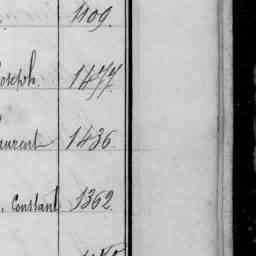 1109.
Joseph. 1477.
Laurent 1436.
. Constant 1362.